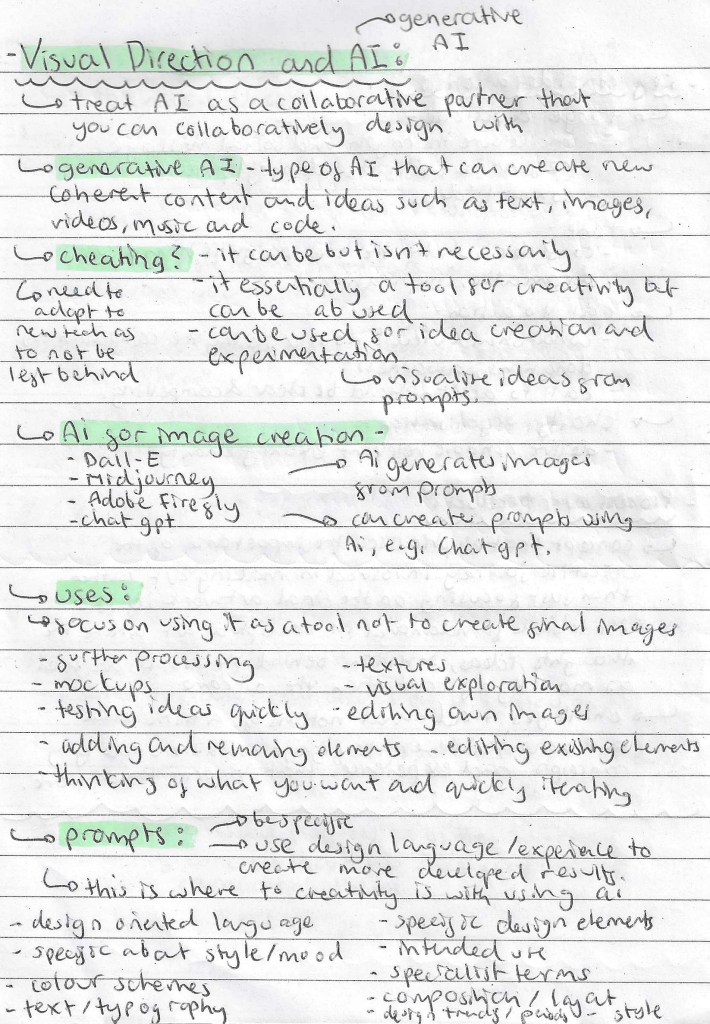 generative
AI
- Visual Direction and AI:
treat AI as a collaborative partner that
you can collaboratively design with
generative AI - type of AI that can create new
coherent content and ideas such as text, images,
videos, music and code.
cheating? - it can be but isn't necessarily
need to
adapt to
new tech as
to not be
left behind
- it essentially a tool for creativity but
can be abused
- can be used for idea creation and
experimentation
visualise ideas from
prompts.
Ai for image creation -
- Dall-E
- Midjourney
- Adobe Firefly
- chat gpt
Ai generates images
from prompts
can create prompts using
Ai, e.g. Chatgpt.
uses:
focus on using it as a tool not to create final images
- further processing - textures
- mockups - visual exploration
- testing ideas quickly - editing own images
- adding and removing elements - editing existing elements
- thinking of what you want and quickly iterating
prompts: be specific
use design language/experience to
create more developed results.
this is where to creativity is with using ai
- design oriented language - specific design elements
- specific about style/mood - intended use
- colour schemes - specialist terms
- text/typography - composition/layout
- design trends/periods - style